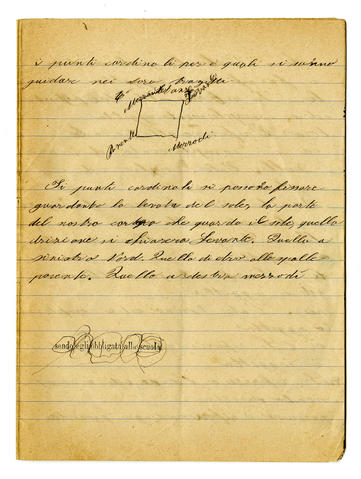 i punti cardinali per e quali si sanno
guidare nei loro
Levante
Ponente
Mezzodi
Si punti cardinali si possono fissare
guardando la levata del sole, la parte
del nostro corpo che guarda il sole, quella
drizione si chiamera Levante. Quella a
sinistra Nord. Quella di dro alle spalle
ponente. Quella a destra mezzodi
sendo egli obbligata alla scuola